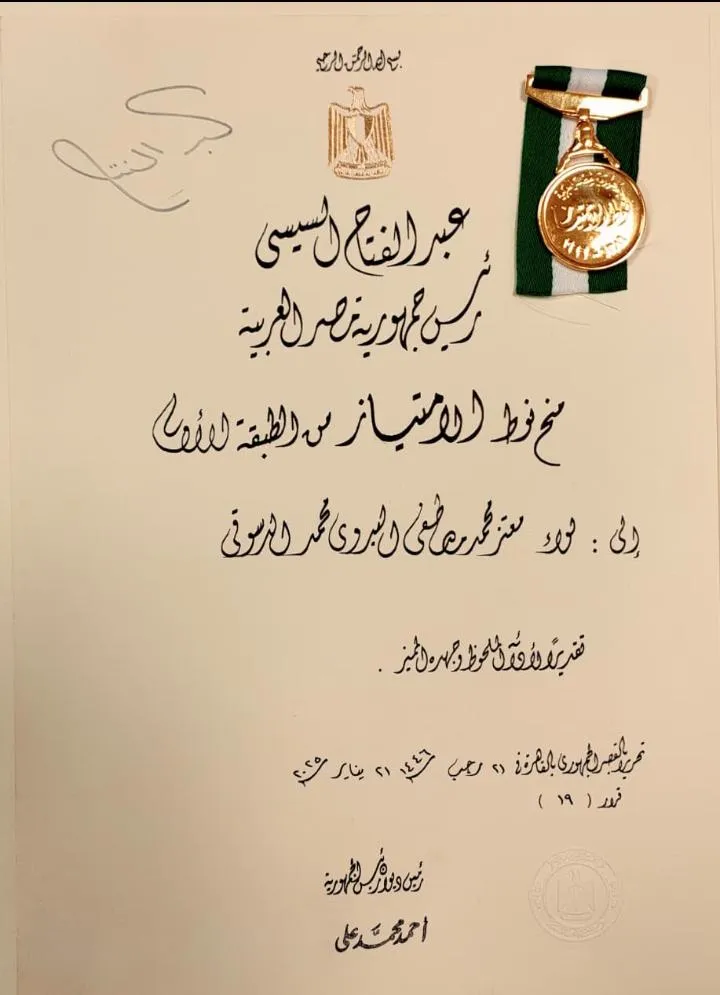 بسم الله الرحمن الرحيم
عبد الفتاح السيسي
رئيس جمهورية مصر العربية
منح نوط الامتياز من الطبقة الأولى
إلى : لواء معتز محمد مصطفى البدوى محمد الدسوقى
تقديرًا لأدائه الملحوظ وجهده المميز .
تحريرًا بالقصر الجمهورى بالقاهرة فى ٢١ رجب ١٤٤٦ ٢١ يناير ٢٠٢٥
قرار ( ١٩ )
رئيس ديوان رئيس الجمهورية
أحمد محمد على